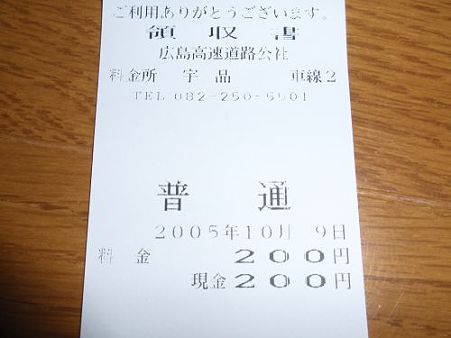 ご利用ありがとうございます。
領収書
広島高速道路公社
料金所 宇品 車線2
TEL 082-250-5901
普通
2005年10月 9日
料金 200円
現金200円